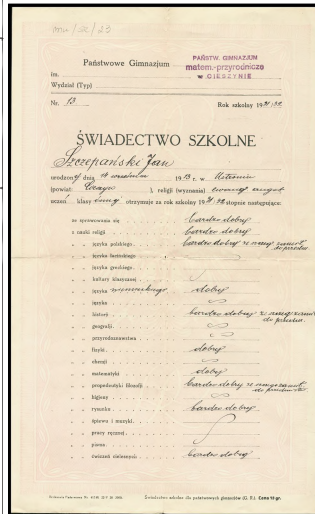 Państwowe Gimnazjum
PAŃSTW. GIMNAZJUM
matem.-przyrodnicze
w CIESZYNIE
im.
Wydział (Typ)
Nr. 13 Rok szkolny 1931/32
ŚWIADECTWO SZKOLNE
Szczepański Jan
urodzony dnia 14 września 1913 r. w Ustroniu
(powiat: ), religji (wyznania)
uczeń klasy otrzymuje za rok szkolny 1931/32 stopnie następujące:
za sprawowanie się bardzo dobry
z nauki religji bardzo dobry
" " języka polskiego bardzo dobry z
" " języka łacińskiego
" " języka greckiego
" " kultury klasycznej
" " języka niemieckiego dobry
" " języka
" " historji bardzo dobry z
" " geografji
" " przyrodoznawstwa
" " fizyki dobry
" " chemji
" " matematyki dobry
" " propedeutyki filozofji bardzo dobry z
" " higjeny
" " rysunku bardzo dobry
" " śpiewu i muzyki
" " pracy ręcznej
" " pisma
" " ćwiczeń cielesnych bardzo dobry
Świadectwo szkolne dla państwowych gimnazjów (G. P.). Cena 10 gr.